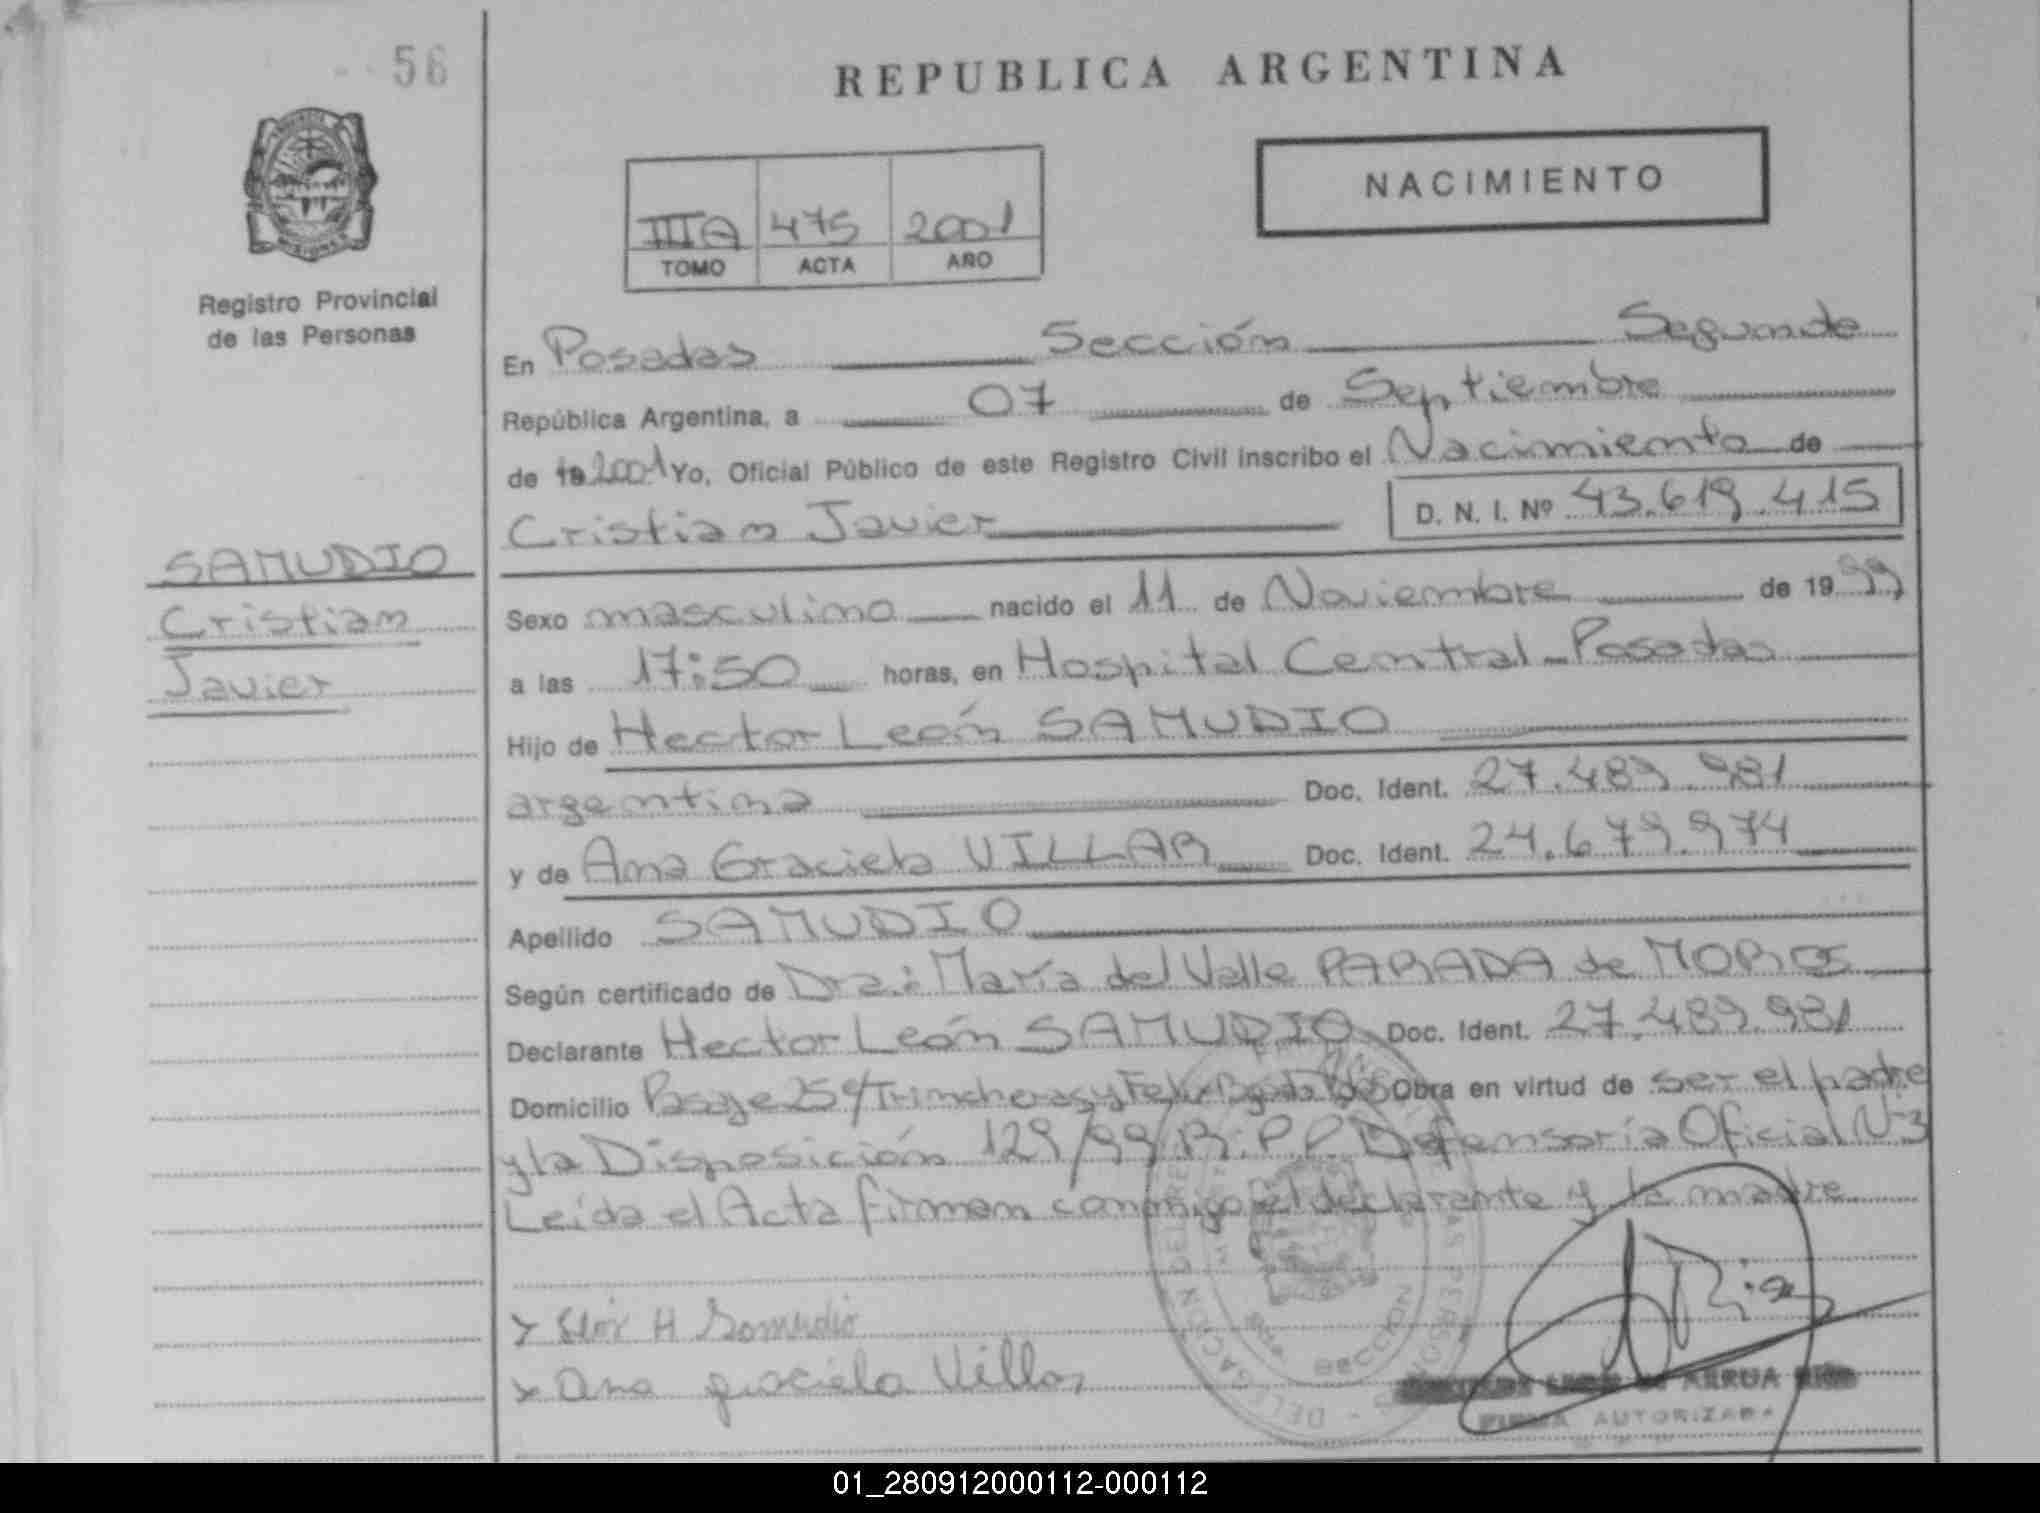 56
REPUBLICA ARGENTINA
NACIMIENTO
III A 475 2001
TOMO ACTA AÑO
Registro Provincial
de las Personas
En Posadas Sección Segunda
República Argentina, a 07 de Septiembre
de 19 2001 Yo, Oficial Público de este Registro Civil inscribo el Nacimiento de
Cristian Javier D. N. I. Nº 43.619.415
SAMUDIO
Cristian
Javier
Sexo masculino nacido el 11 de Noviembre de 1999
a las 17:50 horas, en Hospital Central - Posadas
Hijo de Hector León SAMUDIO
argentina Doc. Ident. 27.489.981
y de Ana Graciela VILLAR Doc. Ident. 24.679.974
Apellido SAMUDIO
Según certificado de Dra.: María del Valle PARADA de MOROS
Declarante Hector León SAMUDIO Doc. Ident. 27.489.981
Domicilio Pasaje 25 e/Trincheras y Felix Obra en virtud de ser el padre
y la Disposición 129/99 R.P.P. Defensoría Oficial Nº 3
Leída el Acta firman conmigo el declarante y la madre
H Samudio
Ana graciela Villar
SECCION
ARRUA
FIRMA AUTORIZADA
01_280912000112-000112